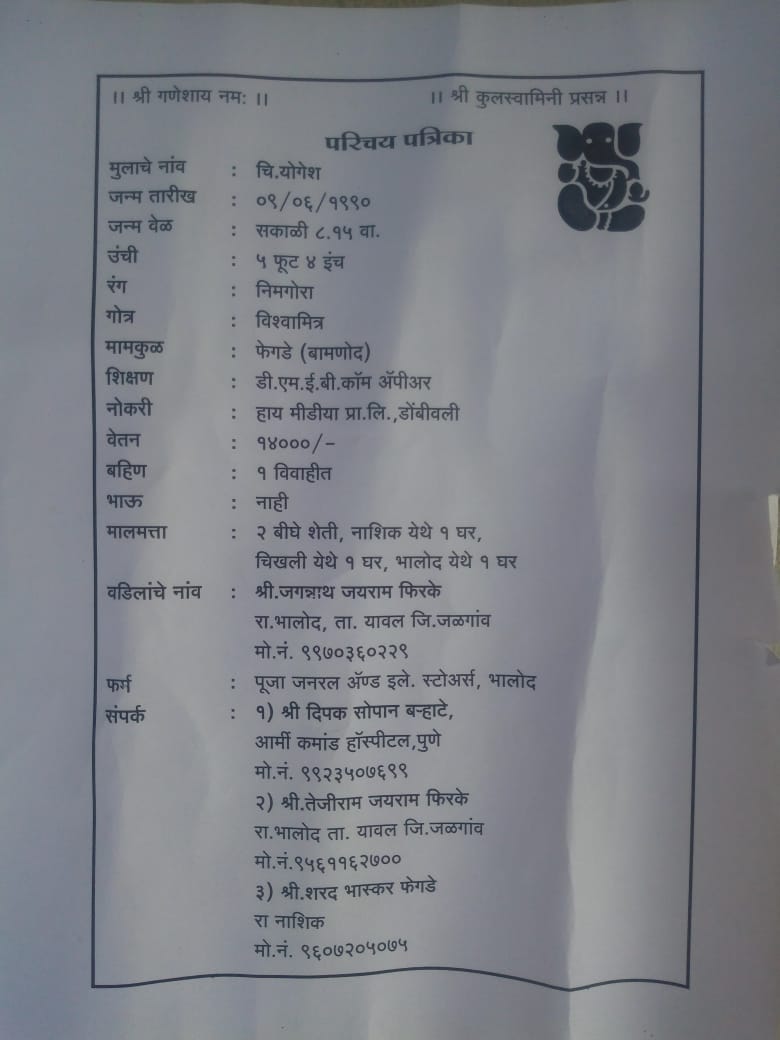 ।। श्री गणेशाय नम: ।। ।। श्री कुलस्वामिनी प्रसन्न ।।
परिचय पत्रिका
मुलाचे नांव : चि.योगेश
जन्म तारीख : ०९/०६/१९९०
जन्म वेळ : सकाळी ८.१५ वा.
उंची : ५ फूट ४ इंच
रंग : निमगोरा
गोत्र : विश्वामित्र
मामकुळ : फेगडे (बामणोद)
शिक्षण : डी.एम.ई.बी.कॉम ॲपीअर
नोकरी : हाय मीडीया प्रा.लि.,डोंबीवली
वेतन : १४०००/-
बहिण : १ विवाहीत
भाऊ : नाही
मालमत्ता : २ बीघे शेती, नाशिक येथे १ घर,
चिखली येथे १ घर, भालोद येथे १ घर
वडिलांचे नांव : श्री.जगन्नाथ जयराम फिरके
रा.भालोद, ता. यावल जि.जळगांव
मो.नं. ९९७०३६०२२९
फर्म : पूजा जनरल ॲण्ड इले. स्टोअर्स, भालोद
संपर्क : १) श्री दिपक सोपान बऱ्हाटे,
आर्मी कमांड हॉस्पीटल,पुणे
मो.नं. ९९२३५०७६९९
२) श्री.तेजीराम जयराम फिरके
रा.भालोद ता. यावल जि.जळगांव
मो.नं.९५६११६२७००
३) श्री.शरद भास्कर फेगडे
रा नाशिक
मो.नं. ९६०७२०५०७५